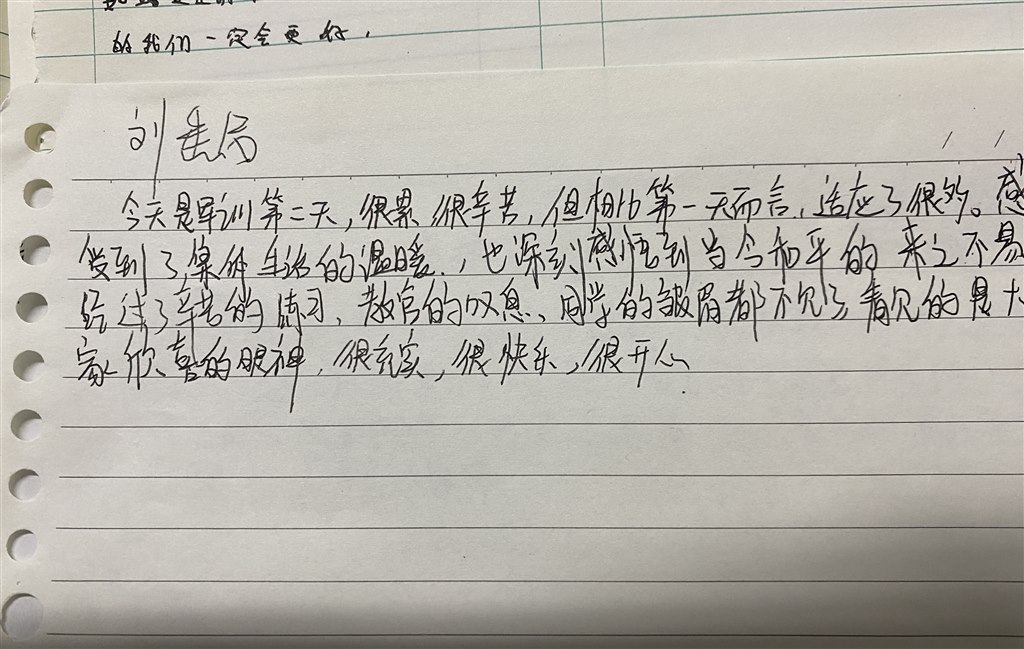 的我们一定会更好，
刘岳局
今天是军训第二天，很累很辛苦，但相比第一天而言，适应了很多。感
受到了集体生活的温暖，也深刻感悟到当今和平的来之不易
经过了辛苦的练习，教官的叹息、同学的皱眉都不见了看见的是大
家欣喜的眼神，很充实，很快乐，很开心